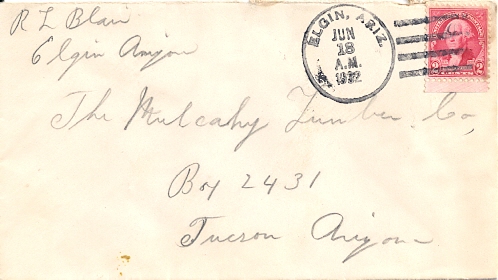 R L Blair
Elgin Arizon
ELGIN, ARIZ.
JUN
18
A.M.
1932
2 2
The Mulcahy Lumber Co,
Box 2431
Tucson Arizona